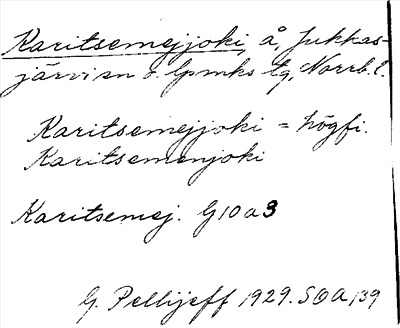 Karitsemejjoki, å, Jukkas-
järvi sn o. lpmks tg, Norrb. l.
Karitsemejjoki = högfi.
Karitsemenjoki
Karitsemej. G10a3
G. Pellijeff 1929. SOA 139